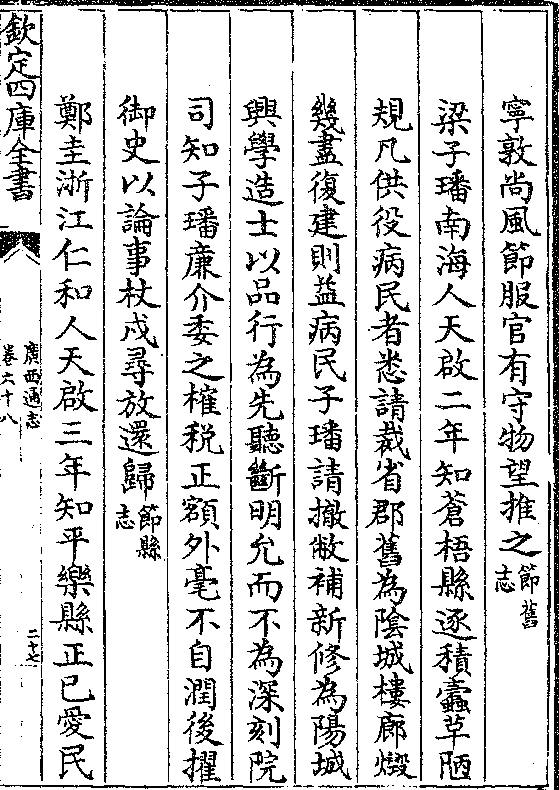 寧敦尚風節服官有守物望推之節舊志
梁子璠南海人天啟二年知蒼梧縣逐積蠧草陋
規凡供役病民者悉請裁省郡舊為陰城樓廊燬
幾盡復建則益病民子璠請撤敝補新修為陽城
興學造士以品行為先聽斷明允而不為深刻院
司知子璠廉介委之榷税正額外毫不自潤後擢
御史以論事杖戍尋放還歸節縣志
鄭圭浙江仁和人天啟三年知平樂縣正已愛民
欽定四庫全書
廣西通志
卷六十八
二十七